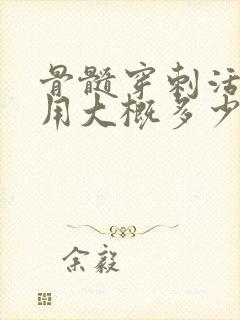 骨髓穿刺活
用大概多少
余毅